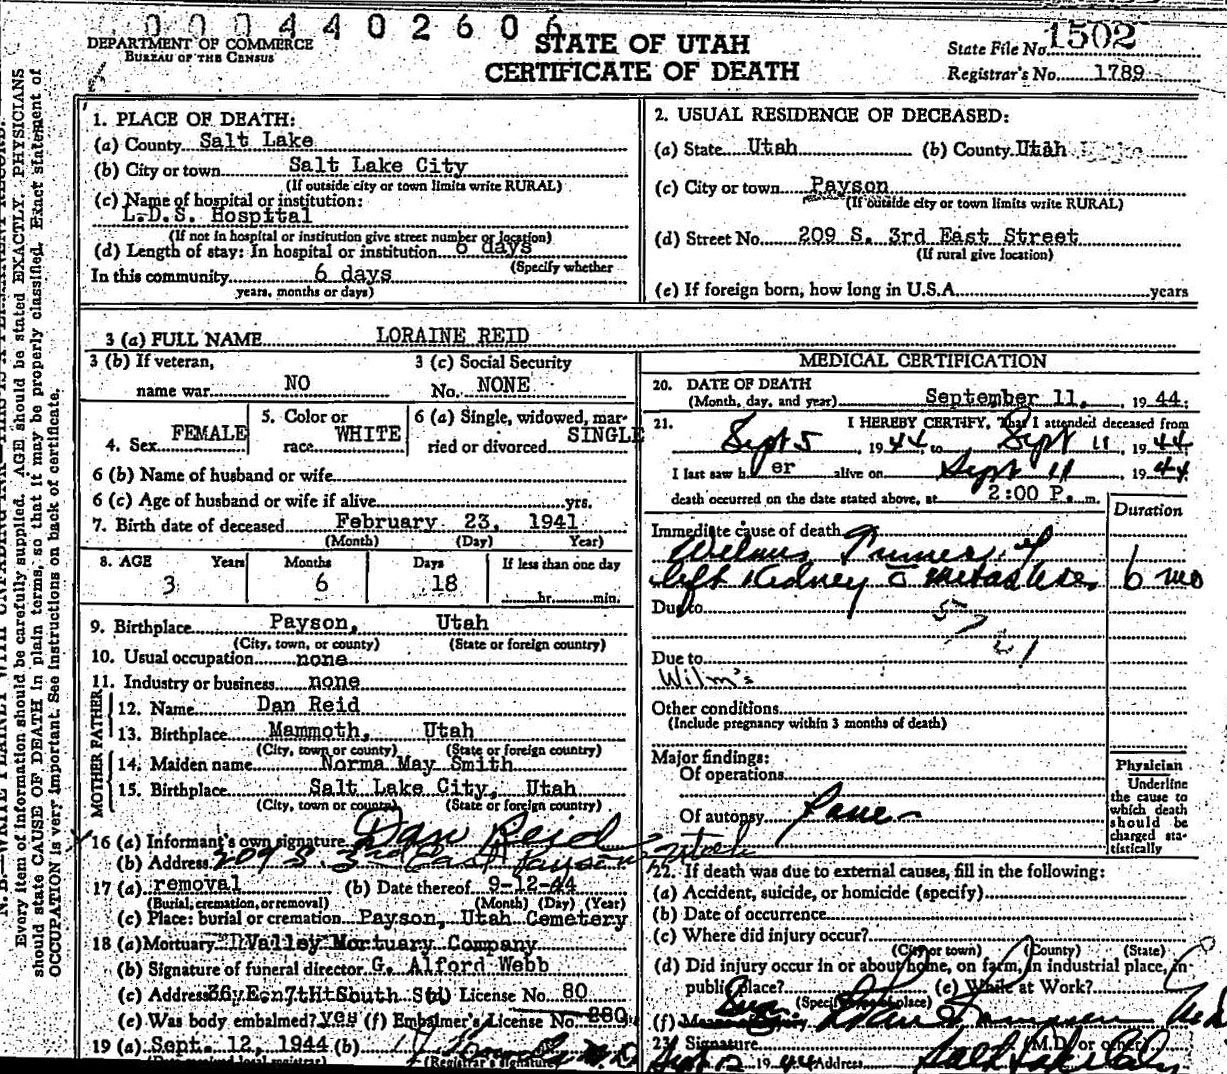 0004402606
DEPARTMENT OF COMMERCE
BUREAU OF THE CENSUS
STATE OF UTAH
CERTIFICATE OF DEATH
State File No. 1502
Registrar's No. 1789
Every item of information should be carefully supplied. AGE should be stated EXACTLY. PHYSICIANS
should state CAUSE OF DEATH in plain terms, so that it may be properly classified. Exact statement of
OCCUPATION is very important. See instructions on back of certificate.
1. PLACE OF DEATH:
(a) County Salt Lake
(b) City or town Salt Lake City
(If outside city or town limits write RURAL)
(c) Name of hospital or institution:
L.D.S. Hospital
(If not in hospital or institution give street number or location)
(d) Length of stay: In hospital or institution 6 days
(Specify whether
In this community 6 days
years, months or days)
2. USUAL RESIDENCE OF DECEASED:
(a) State Utah (b) County Utah
(c) City or town Payson
(If outside city or town limits write RURAL)
(d) Street No. 209 S. 3rd East Street
(If rural give location)
(e) If foreign born, how long in U.S.A. years
3 (a) FULL NAME LORAINE REID
3 (b) If veteran, 3 (c) Social Security
name war NO No. NONE
4. Sex FEMALE
5. Color or
race WHITE
6 (a) Single, widowed, mar-
ried or divorced SINGLE
6 (b) Name of husband or wife
6 (c) Age of husband or wife if alive yrs.
7. Birth date of deceased February 23, 1941
(Month) (Day) Year)
8. AGE Years Months Days If less than one day
3 6 18 hr. min.
9. Birthplace Payson, Utah
(City, town, or county) (State or foreign country)
10. Usual occupation none
11. Industry or business none
MOTHER FATHER
12. Name Dan Reid
13. Birthplace Mammoth, Utah
(City, town or county) (State or foreign country)
14. Maiden name Norma May Smith
15. Birthplace Salt Lake City, Utah
(City, town or county) (State or foreign country)
16 (a) Informant's own signature Dan Reid
(b) Address 209 S. 3rd East Payson Utah
17 (a) removal (b) Date thereof 9-12-44
(Burial, cremation, or removal) (Month) (Day) (Year)
(c) Place: burial or cremation Payson, Utah Cemetery
18 (a) Mortuary Valley Mortuary Company
(b) Signature of funeral director G. Alford Webb
(c) Address 36 E. 7th South St. License No. 80
(e) Was body embalmed? yes (f) Embalmer's License No. 880
19 (a) Sept. 12, 1944 (b)
(Registrar's signature)
MEDICAL CERTIFICATION
20. DATE OF DEATH
(Month, day, and year) September 11, 1944
21. I HEREBY CERTIFY, That I attended deceased from
Sept 5, 1944 to Sept 11, 1944
I last saw her alive on Sept 11 1944
death occurred on the date stated above, at 2:00 P. m.
Duration
Immediate cause of death
Wilms Tumor of
left Kidney c̄ metastases 6 mo
Due to
Due to
Wilm's
Other conditions
(Include pregnancy within 3 months of death)
Major findings:
Of operations
Of autopsy
Physician
Underline
the cause to
which death
should be
charged sta-
tistically
22. If death was due to external causes, fill in the following:
(a) Accident, suicide, or homicide (specify)
(b) Date of occurrence
(c) Where did injury occur?
(City or town) (County) (State)
(d) Did injury occur in or about home, on farm, in industrial place, in
public place? (e) While at Work?
(Specify type of place)
(f)
23. Signature (M.D. or other)
Sept 12 1944 Address Salt Lake City